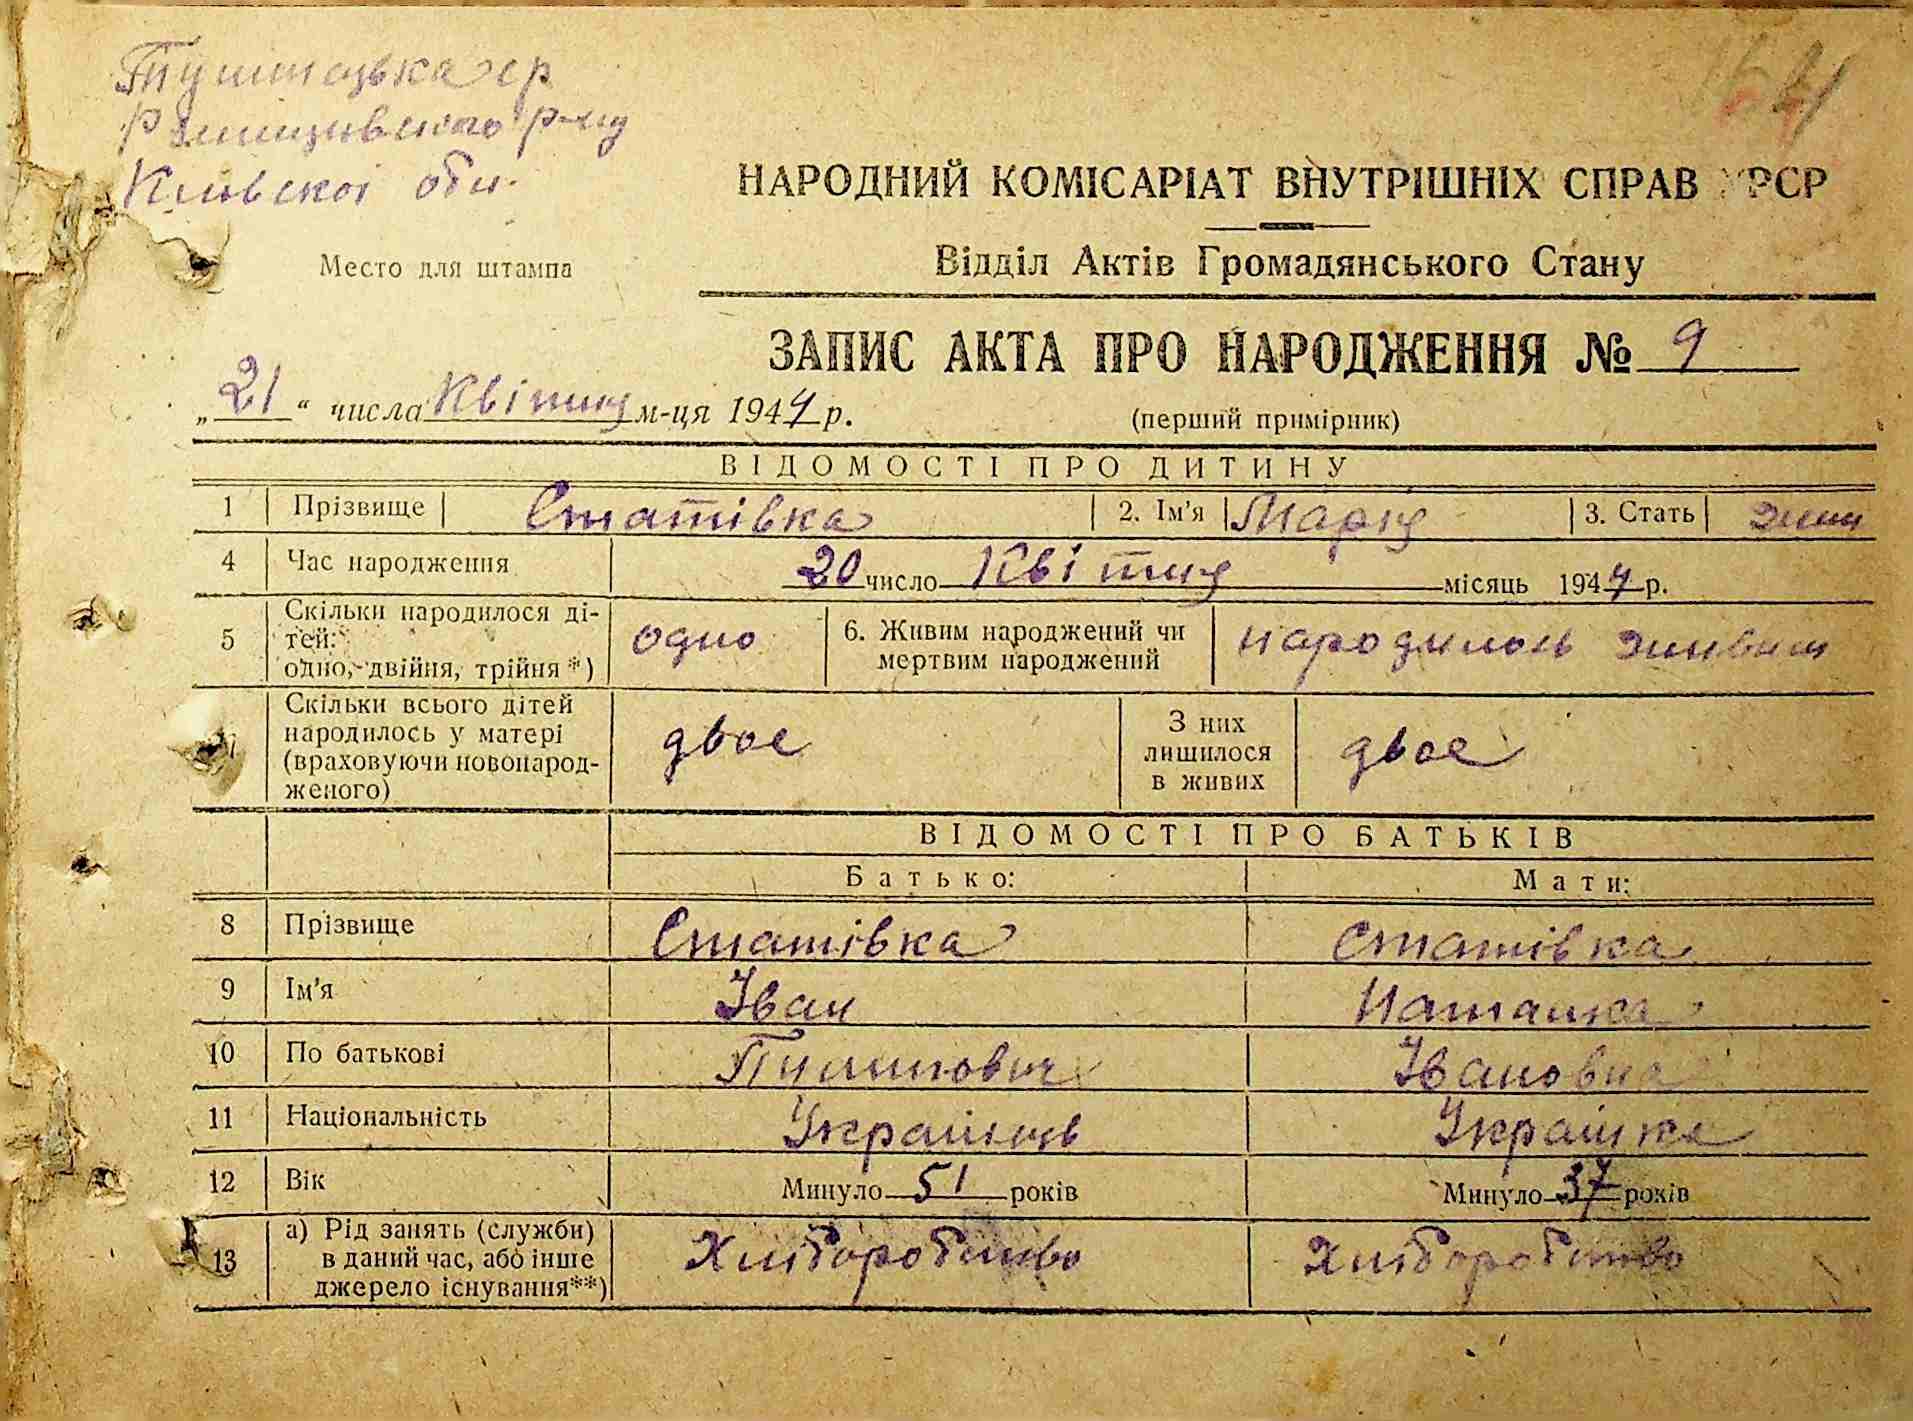 Пшеницька с/р
Київскої обл.
НАРОДНИЙ КОМІСАРІАТ ВНУТРІШНІХ СПРАВ УРСР
Место для штампа
Відділ Актів Громадянського Стану
ЗАПИС АКТА ПРО НАРОДЖЕННЯ № 9
„21“ числа Квітня м-ця 1944 р.
(перший примірник)
ВІДОМОСТІ ПРО ДИТИНУ
1 Прізвище Статівка 2. Ім'я 3. Стать жин
4 Час народження 20 число Квітня місяць 1944 р.
5 Скільки народилося ді-
тей:
одно, двійня, трійня*) одно 6. Живим народжений чи
мертвим народжений народилось живим
7 Скільки всього дітей
народилось у матері
(враховуючи новонарод-
женого) двое З них
лишилося
в живих двое
ВІДОМОСТІ ПРО БАТЬКІВ
Батько: Мати:
8 Прізвище Статівка Статівка
9 Ім'я Іван Наташка
10 По батькові Пилипович Івановна
11 Національність Українець Українка
12 Вік Минуло 51 років Минуло 37 років
13 а) Рід занять (служби)
в даний час, або інше
джерело існування**) Хліборобство Хліборобство